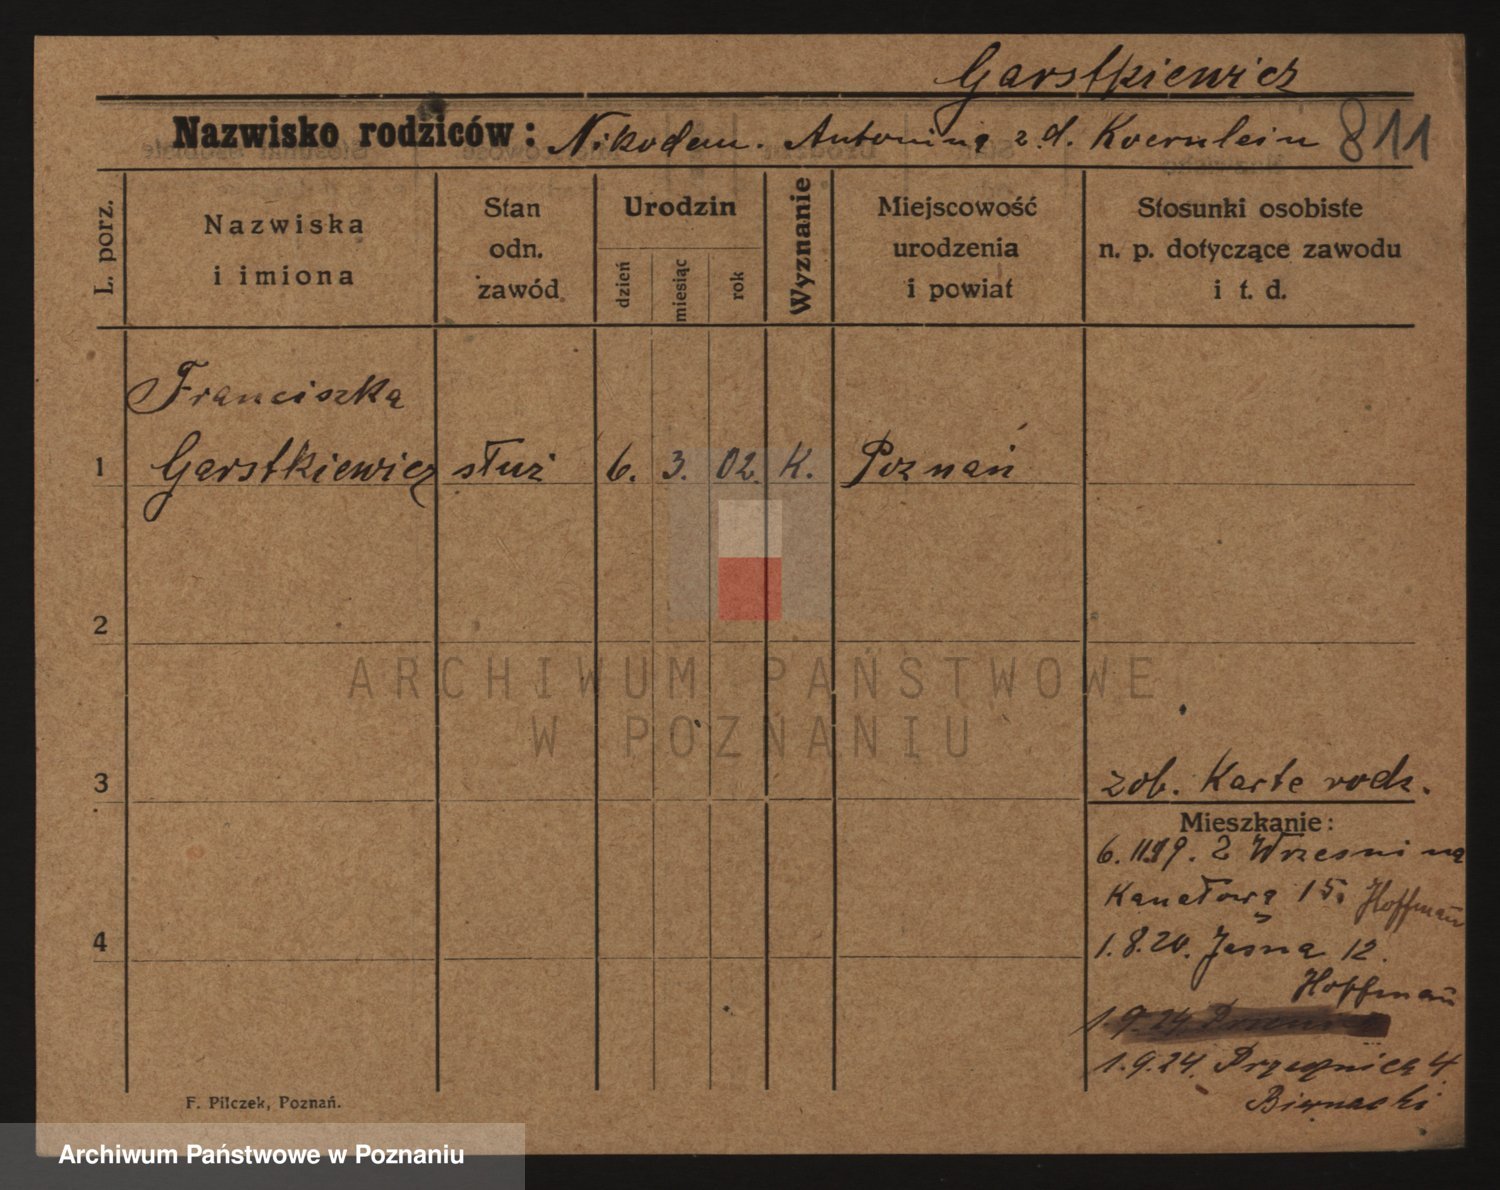 Garstkiewicz
Nazwisko rodziców: Nikodem. Antonina z d. Koernlein 811
L. porz.
Nazwiska
i imiona
Stan
odn.
zawód
Urodzin
dzień
miesiąc
rok
Wyznanie
Miejscowość
urodzenia
i powiat
Stosunki osobiste
n. p. dotyczące zawodu
i t. d.
Franciszka
1 Garstkiewicz służ 6. 3. 02. K. Poznań
2
ARCHIWUM PAŃSTWOWE
W POZNANIU
3
zob. Karte rodz.
Mieszkanie:
6. 11.19. z Wrzesni na
Kanałową 15. Hoffmann
4
1.8.20. Jasna 12.
Hoffmann
1.9.24.
1.9.24. 4
Biernacki
F. Pilczek, Poznań.
Archiwum Państwowe w Poznaniu